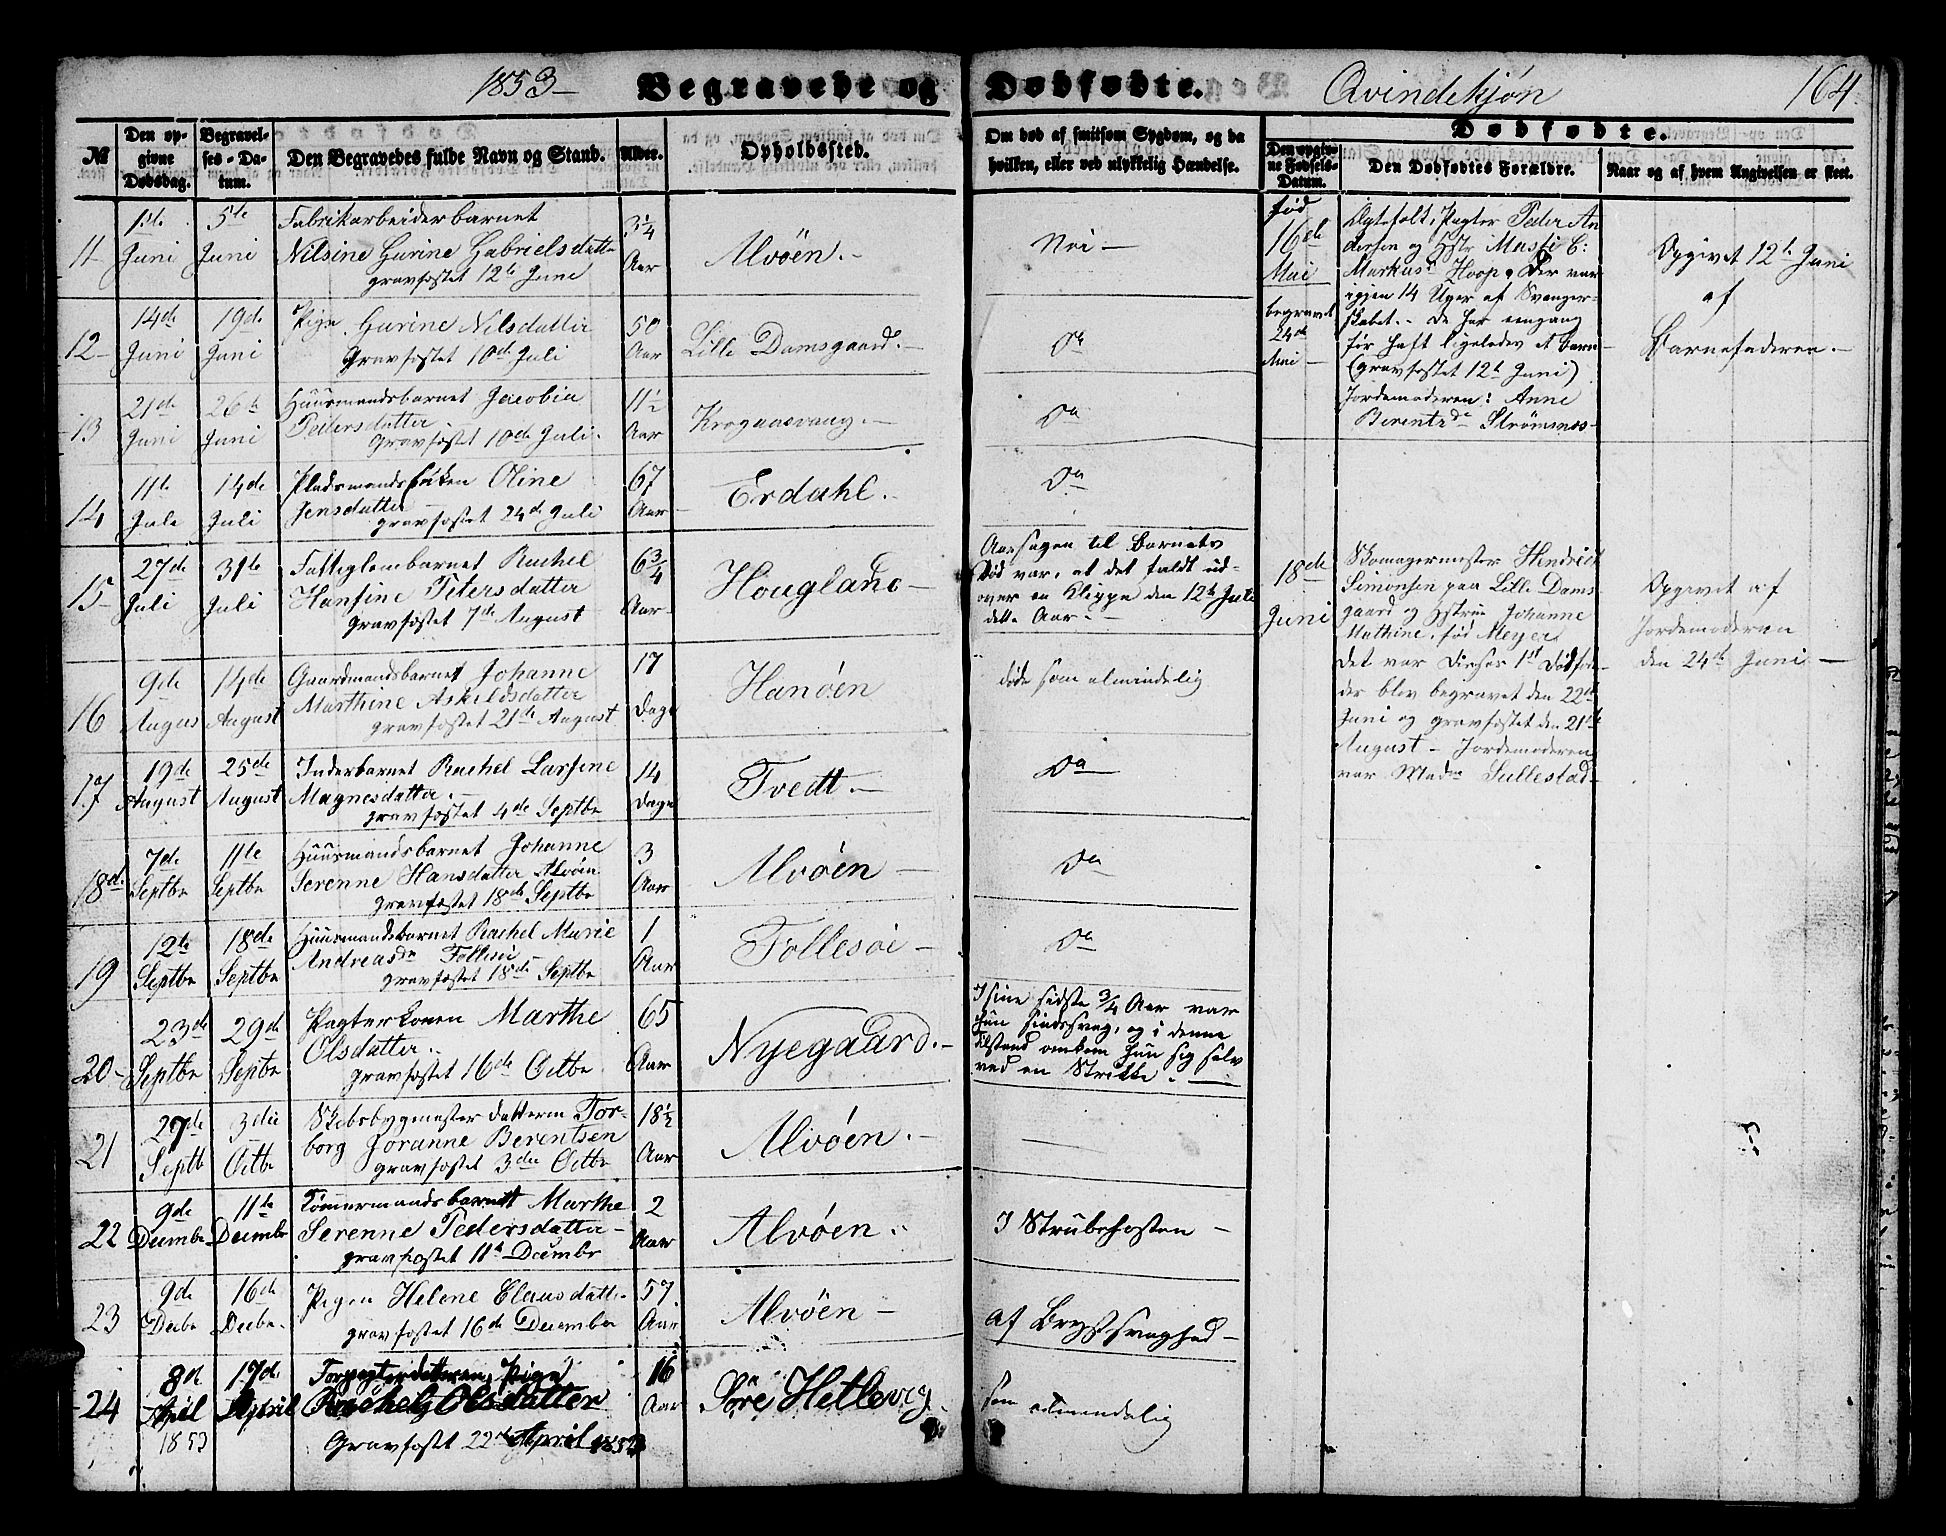 1853 – Begravede og Dødfødte. Qvindekjøn 164.
№ Den opgivne Dødsdag. Begravelses-Datum. Den Begravedes fulde Navn og Stand. Alder. Opholdssted. Om død af smitsom Sygdom, og da hvilken, eller ved ulykkelig Hændelse. Dødfødte.
Den opgivne Fødsels-Datum. Den Dødfødtes Forældre. Naar og af hvem Angivelsen er skeet.
11 1ste Juni 5te Juni Fabrikarbeiderbarnet
Nilsine Gurine Gabrielsdatter
gravfæstet 12te Juni
3 1/4 Aar Alvøen. – Nei –
12 – 14de Juni 19de Juni Pige Gurine Nilsdatter
Gravfæstet 10de Juli
50 Aar Lille Damsgaard. – Do
13 21de Juni 26de Juni Huusmandsbarnet Jacobia
Pedersdatter.
Gravfæstet 10de Juli.
11 1/2 Aar Do
14 11te Juli 14de Juli Pladsmandsenken Oline
Jensdatter
gravfæstet 24de Juli
67 Aar Erdahl. – Do
15 – 27de Juli 31te Juli Fattiglembarnet Rachel
Hansine Petersdatter
Gravfæstet 7de August
6 3/4 Aar Hougland – Aarsagen til Barnets
Død var, at det faldt ud-
over en Klippe den 12te Juli
dette Aar. –
16 9de August 14de August Gaardmandsbarnet Johanne
Marthine Askildsdatter
gravfæstet 21de August
17 Dage Hanøen døde som almindelig
17 19de August 25de August Inderbarnet Rachel Larsine
Magnesdatter. –
gravfæstet 4de Septbr
14 Dage Tvedt. – Do
18 7de Septbr 11te Septbr Huusmandsbarnet Johanne
Serenne Hansdatter Alvøen
gravfæstet 18de Septbr
3 Aar Alvøen – Do
19 12te Septbr 18de Septbr Huusmandsbarnet Rachel Marie
Andreasdr Follesøi
gravfæstet 18de Septbr
1 Aar Follesøi – Do
20 – 23de Septbr 29de Septbr Pagterkonen Marthe
Olsdatter.
gravfæstet 16de Octbr.
65 Aar Nyegaard. – I sine sidste 3/4 Aar var
hun sindssvag, og i denne
Tilstand omkom hun sig selv
ved en Strikke. –
21 27de Septb 3die Octbr Skibsbygmester datteren Tor-
borg Joranne Berentsen
gravfæstet 3die Octbr
18 1/2 Aar Alvøen. – –
22 9de Decembr 11te Decembr Tømmermandsbarnet Marthe
Serenne Pedersdatter –
gravfæstet 11te Decembr
2 Aar Alvøen. I Strubehosten –
23 9de Decbr 16de Decbr. Pigen Helene Clausdatter
gravfæstet 16de December
57 Aar Alvøen – af Brystsvaghed –
24 8de April 1853 17de April Forpagterdatteren, Pige
Rachel Olsdatter
Gravfæstet 22de April 1853
16 Aar Søre Hetlevig som almindelig
født
16de
Mai
begravet
24de
Mai –
Ægtefolk, Pagter Peder An
dersen og Hstr Massi C:
Markusd Hoop, der var
igjen 14 Uger af Svanger-
skabet. – De har eengang
før havt ligeledes et Barn –
(gravfæstet 12te Juni)
Jordemoderen: Anne
Berentsdr Strømsnes –
Opgivet 12te Juni
af
Barnefaderen. –
18de
Juni
Skomagermester Hendrick
Simonsen paa Lille Dams
gaard og Hstru Johanne
Mathine, fød Meyer,
det var Disses 1st Dødfø-
der blev begravet den 22de
Juni og gravfæstet den 21de
August – Jordemoderen
var Madm Sullestad –
Opgivet af
Jordemoderen
den 24de Juni –